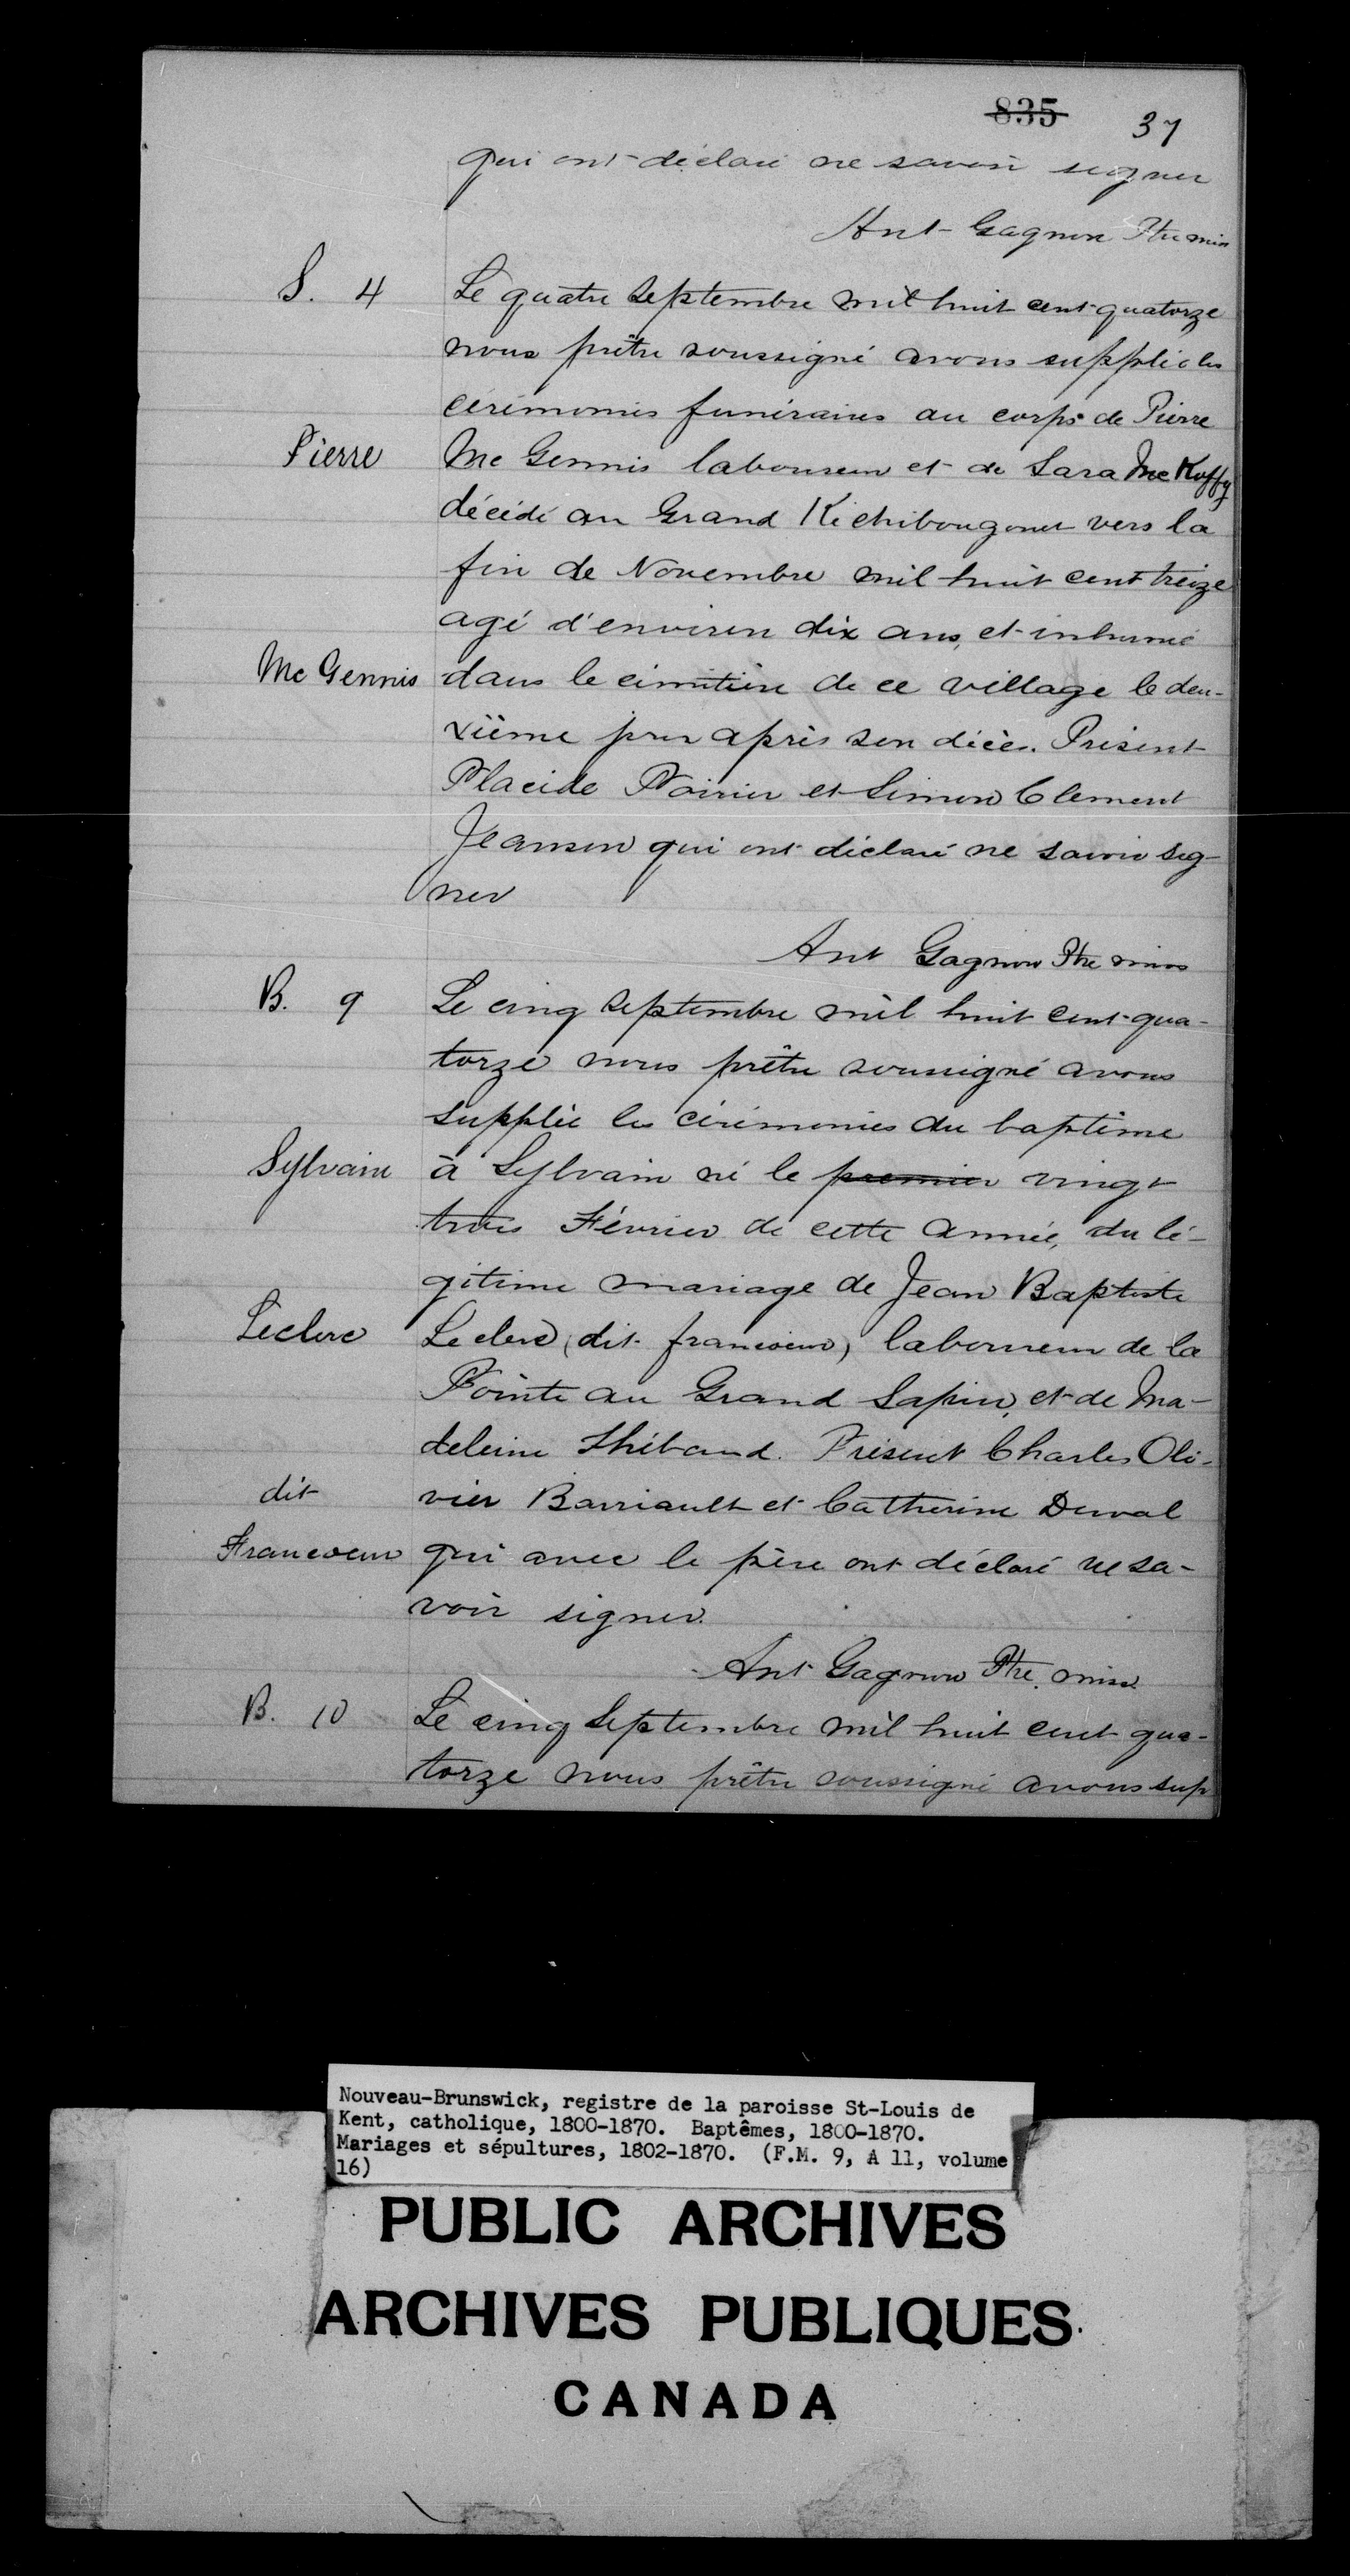 835 37
qui ont déclaré ne savoir signer
Ant Gagnon Ptre miss
S. 4 Le quatre Septembre mil huit cent quatorze
nous prêtre soussigné avons supplié les
cérémonies funéraires au corps de Pierre
Pierre Mc Gennis laboureur et de Sara Mc Koffy
décédé au Grand Kichibougouet vers la
fin de Novembre mil huit cent treize
agé d'environ dix ans, et inhumé
Mc Gennis dans le cimitière de ce village le deu-
xième jour après son décès. Présent
Placide Poirier et Simon Clement
Jeanson qui ont déclaré ne savoir sig-
ner
Ant Gagnon Ptre miss
B. 9 Le cinq Septembre mil huit cent qua-
torze nous prêtre soussigné avons
supplée les cérémonies du baptême
Sylvain à Sylvain né le premier vingt
trois Février de cette année, du lé-
gitime mariage de Jean Baptiste
Leclerc Leclerc (dit francoeur) laboureur de la
Pointe au Grand Sapin, et de Ma-
deleine Thibaud. Présent Charles Oli-
dit vier Barriault et Catherine Duval
Francoeur qui avec le père ont déclaré ne sa-
voir signer.
Ant Gagnon Ptre. miss.
B. 10 Le cinq Septembre mil huit cent qua-
torze nous prêtre soussigné avons sup
Nouveau-Brunswick, registre de la paroisse St-Louis de
Kent, catholique, 1800-1870. Baptêmes, 1800-1870.
Mariages et sépultures, 1802-1870. (F.M. 9, A 11, volume
16)
PUBLIC ARCHIVES
ARCHIVES PUBLIQUES
CANADA